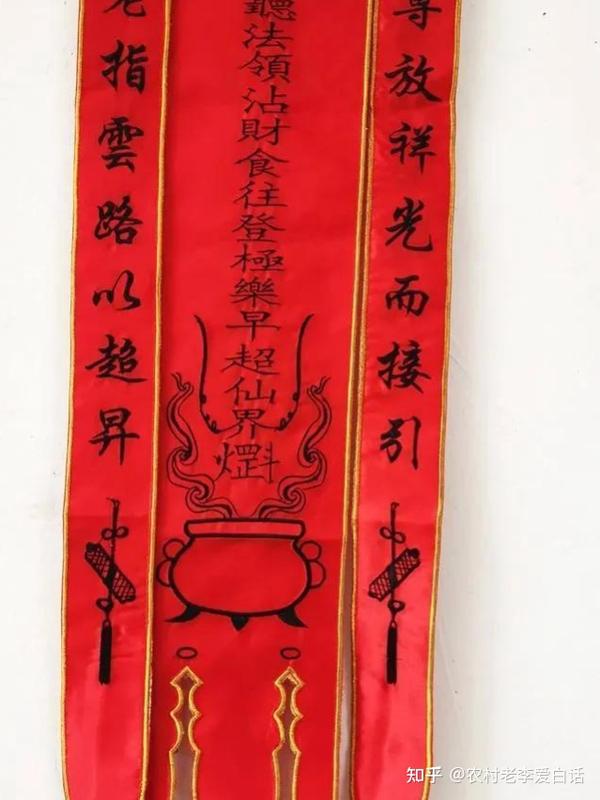 尊放祥光而接引
聽法領沾財食往登極樂早超仙界
老指雲路以超昇
知乎 @农村老李爱白话